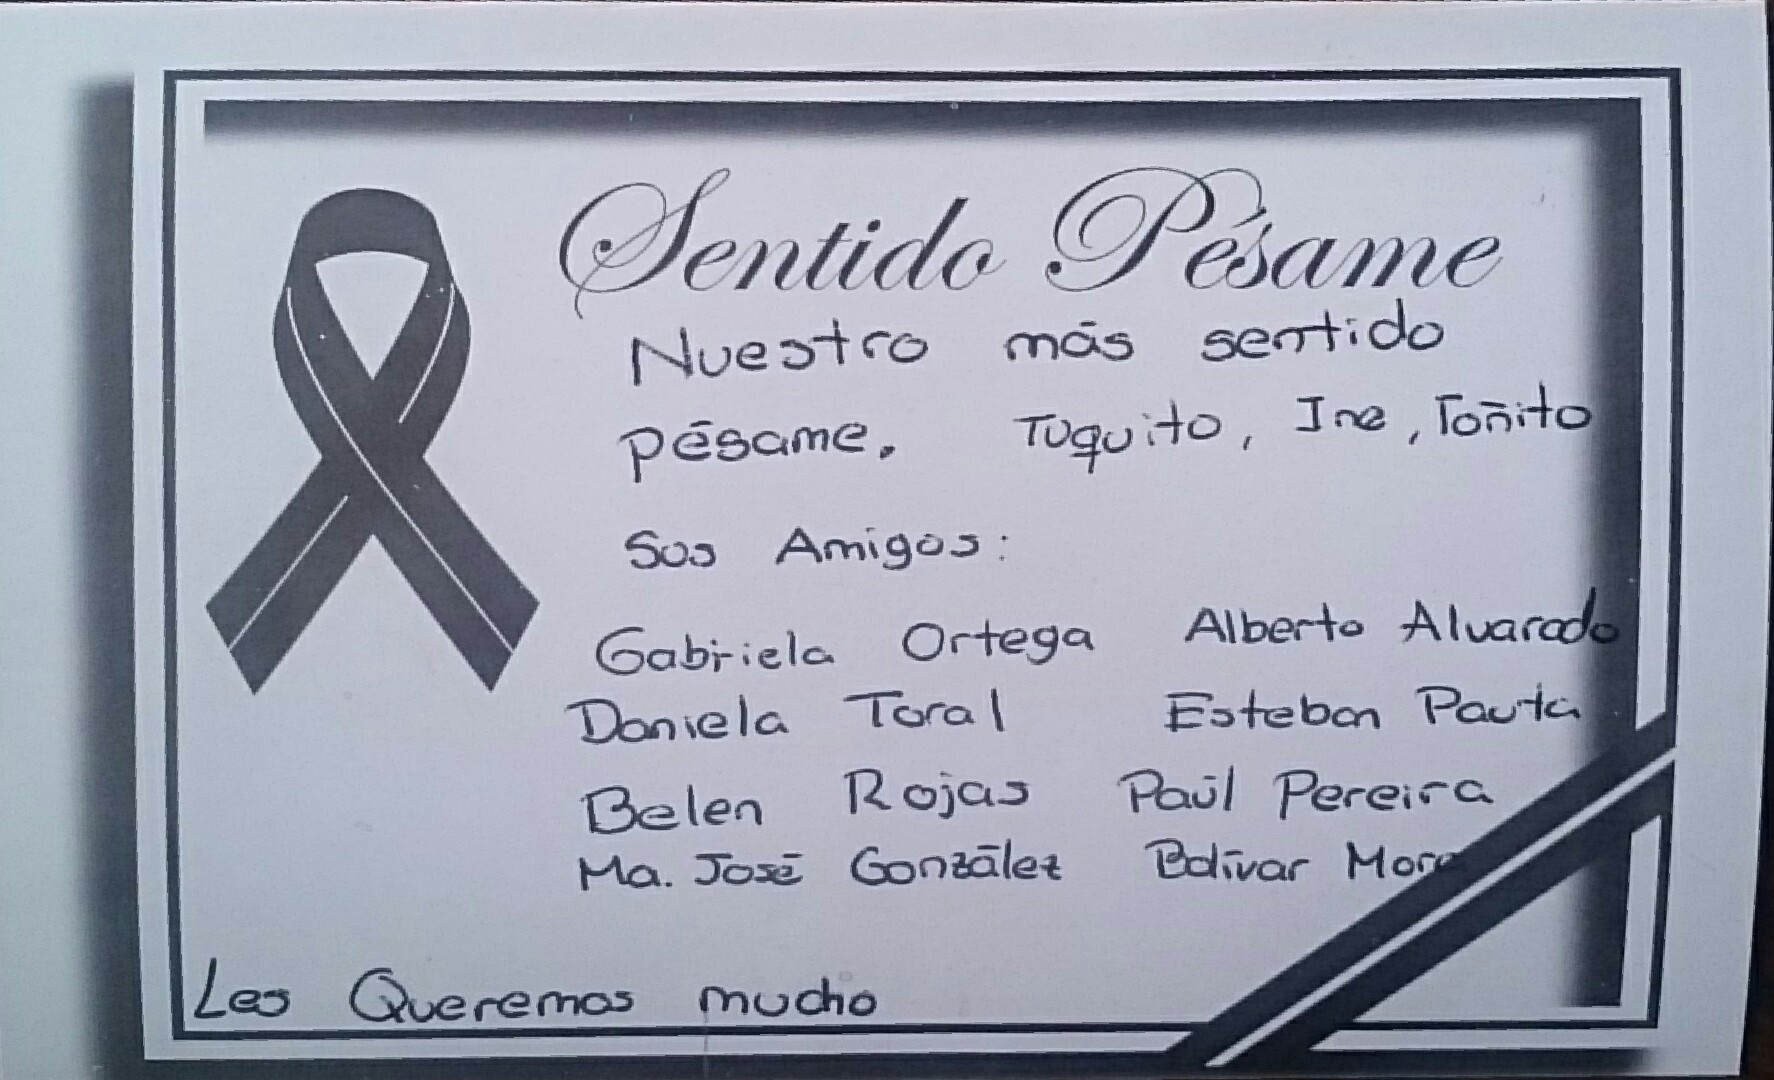 Sentido Pésame
Nuestro más sentido
pésame. Tuquito, Ine, Toñito
Sus Amigos:
Gabriela Ortega Alberto Alvarado
Daniela Toral Esteban Pauta
Belen Rojas Paúl Pereira
Ma. José González Bolívar
Les Queremos mucho